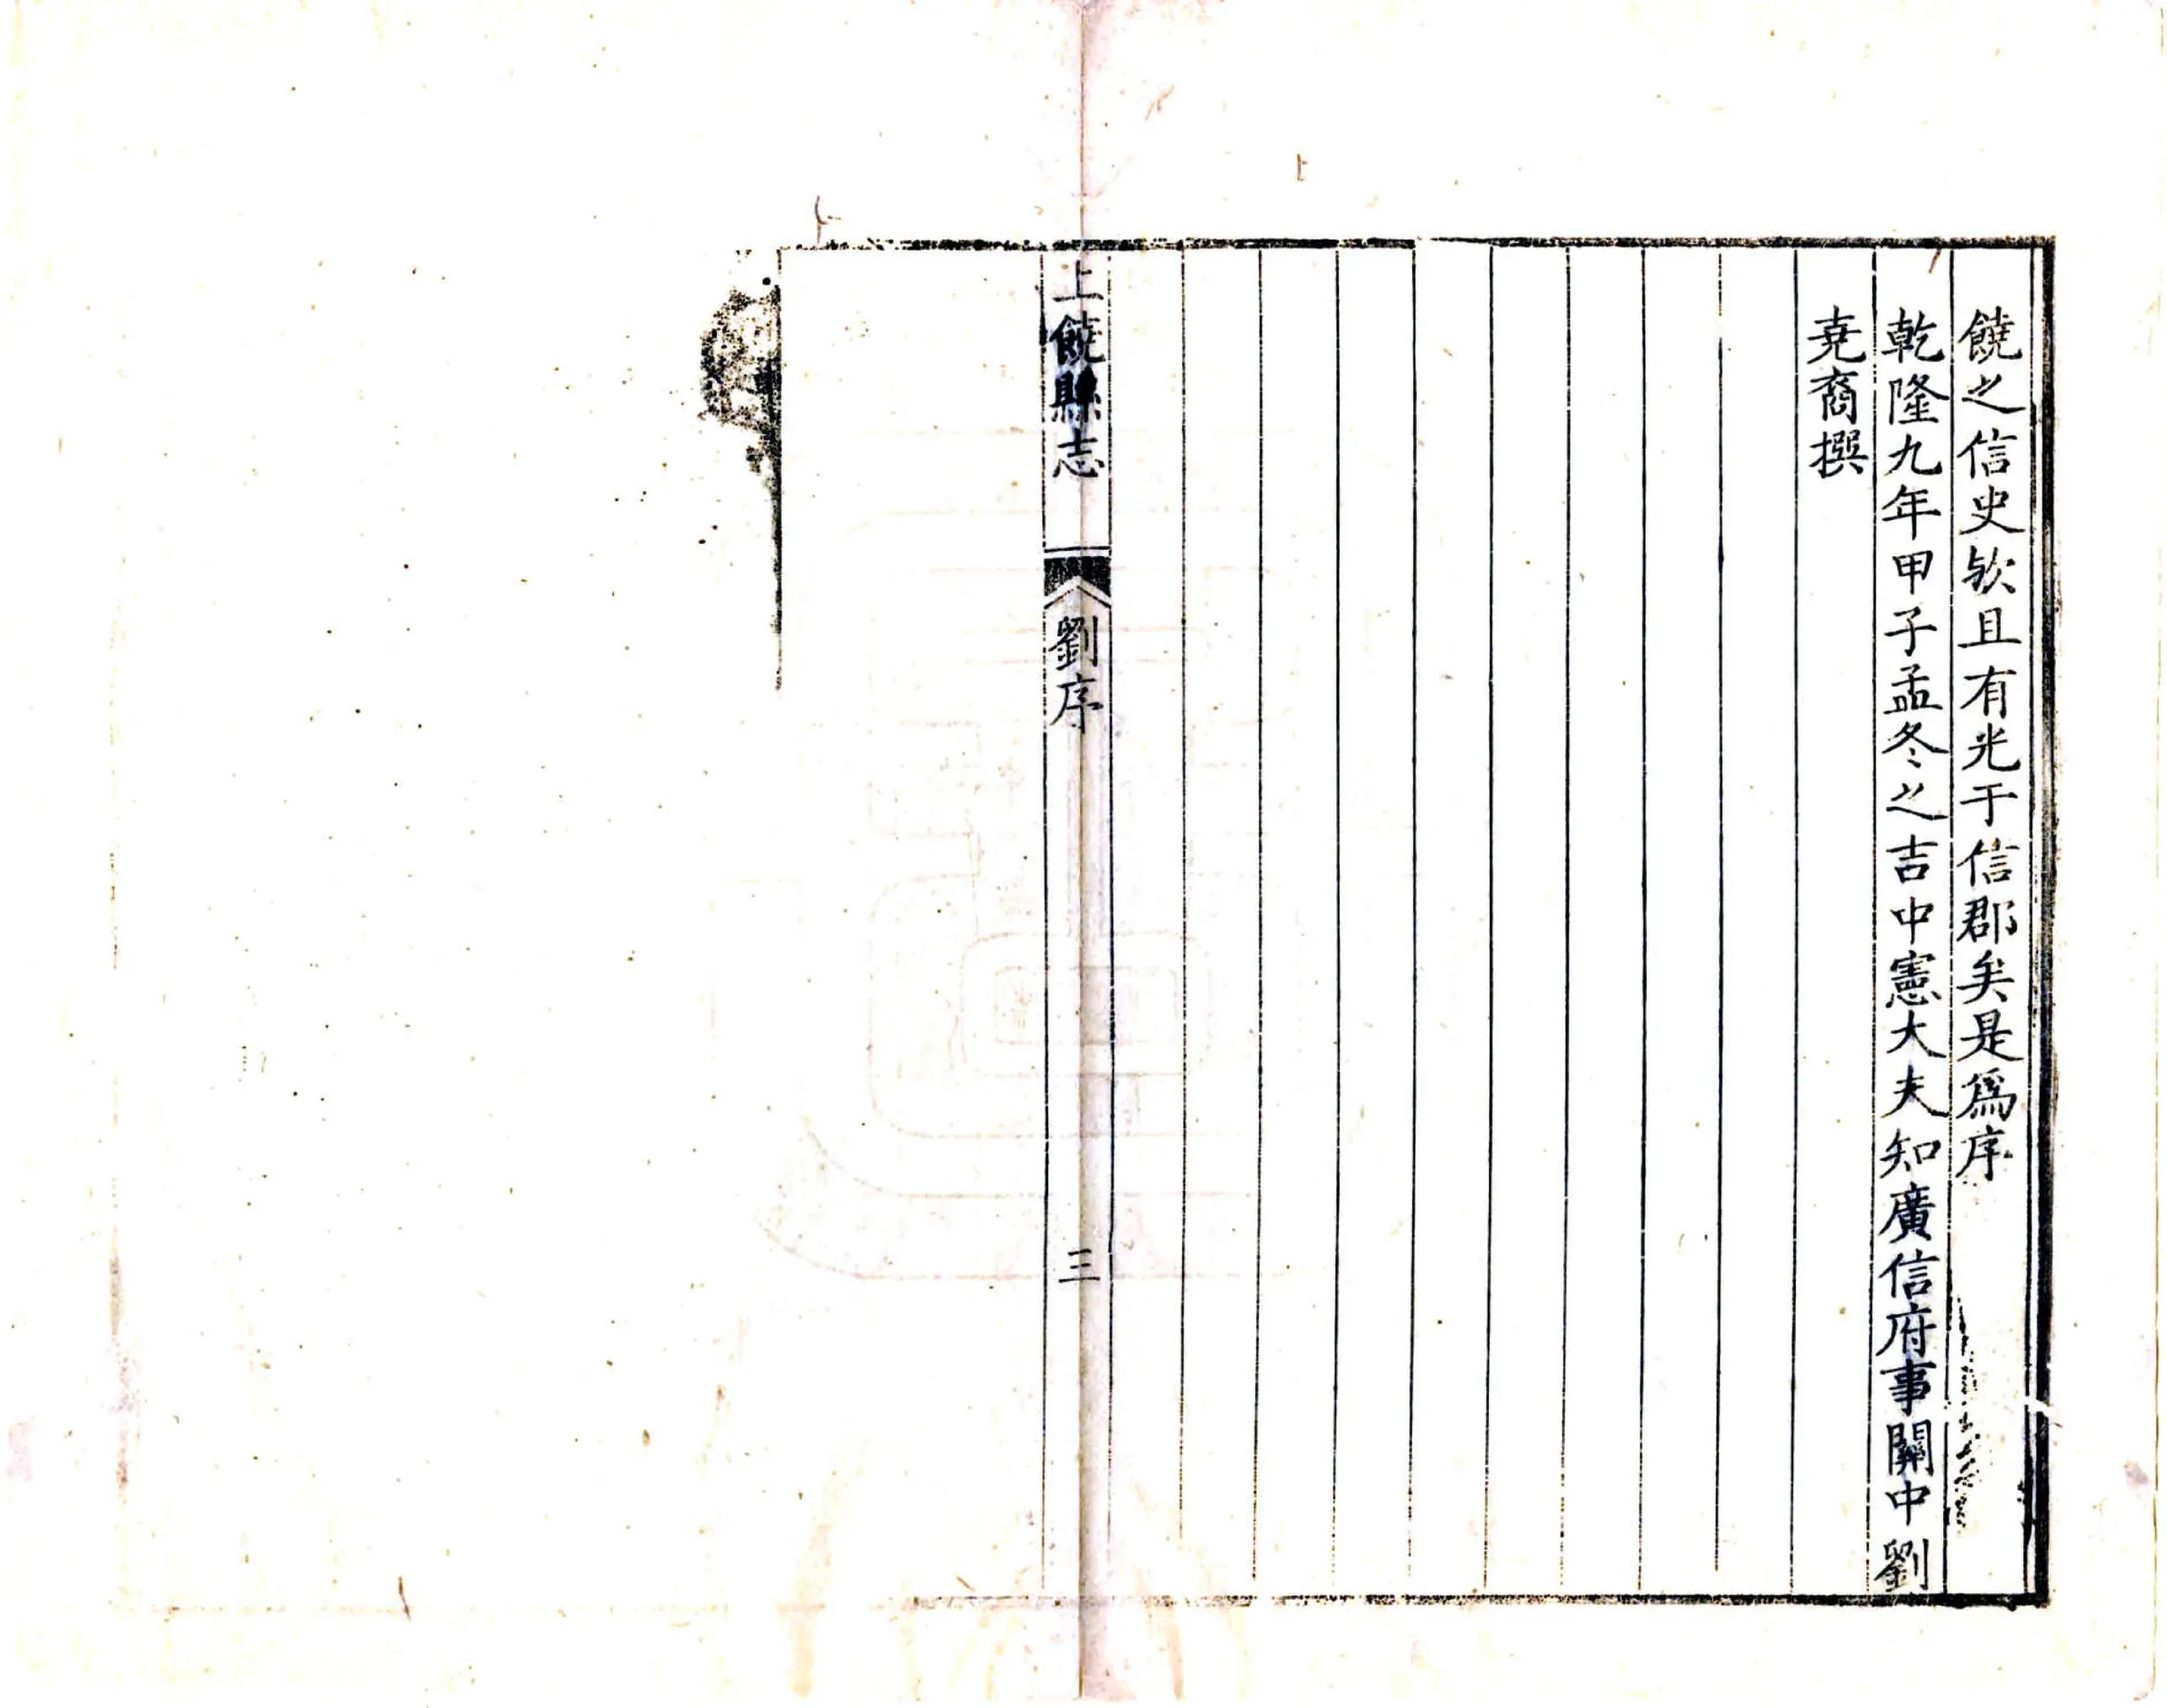 饒之信史欤且有光于信郡矣是爲序
乾隆九年甲子孟冬之吉中憲大夫知廣信府事關中劉
尭裔撰
上饒縣志 劉序 三